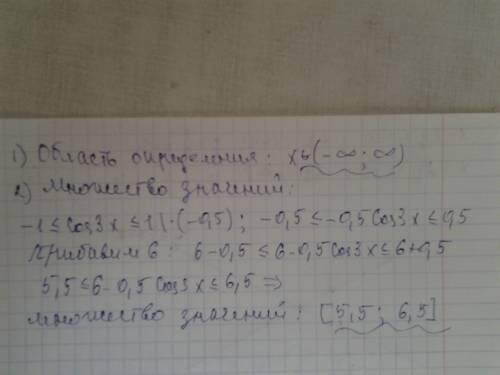 1) Область определения: x∈(-∞; ∞)
2) Множество значений:
-1≤cos3x≤1 |·(-0,5); -0,5≤-0,5cos3x≤0,5
Прибавим 6: 6-0,5≤6-0,5cos3x≤6+0,5
5,5≤6-0,5cos3x≤6,5 ⇒
множество значений: [5,5; 6,5]